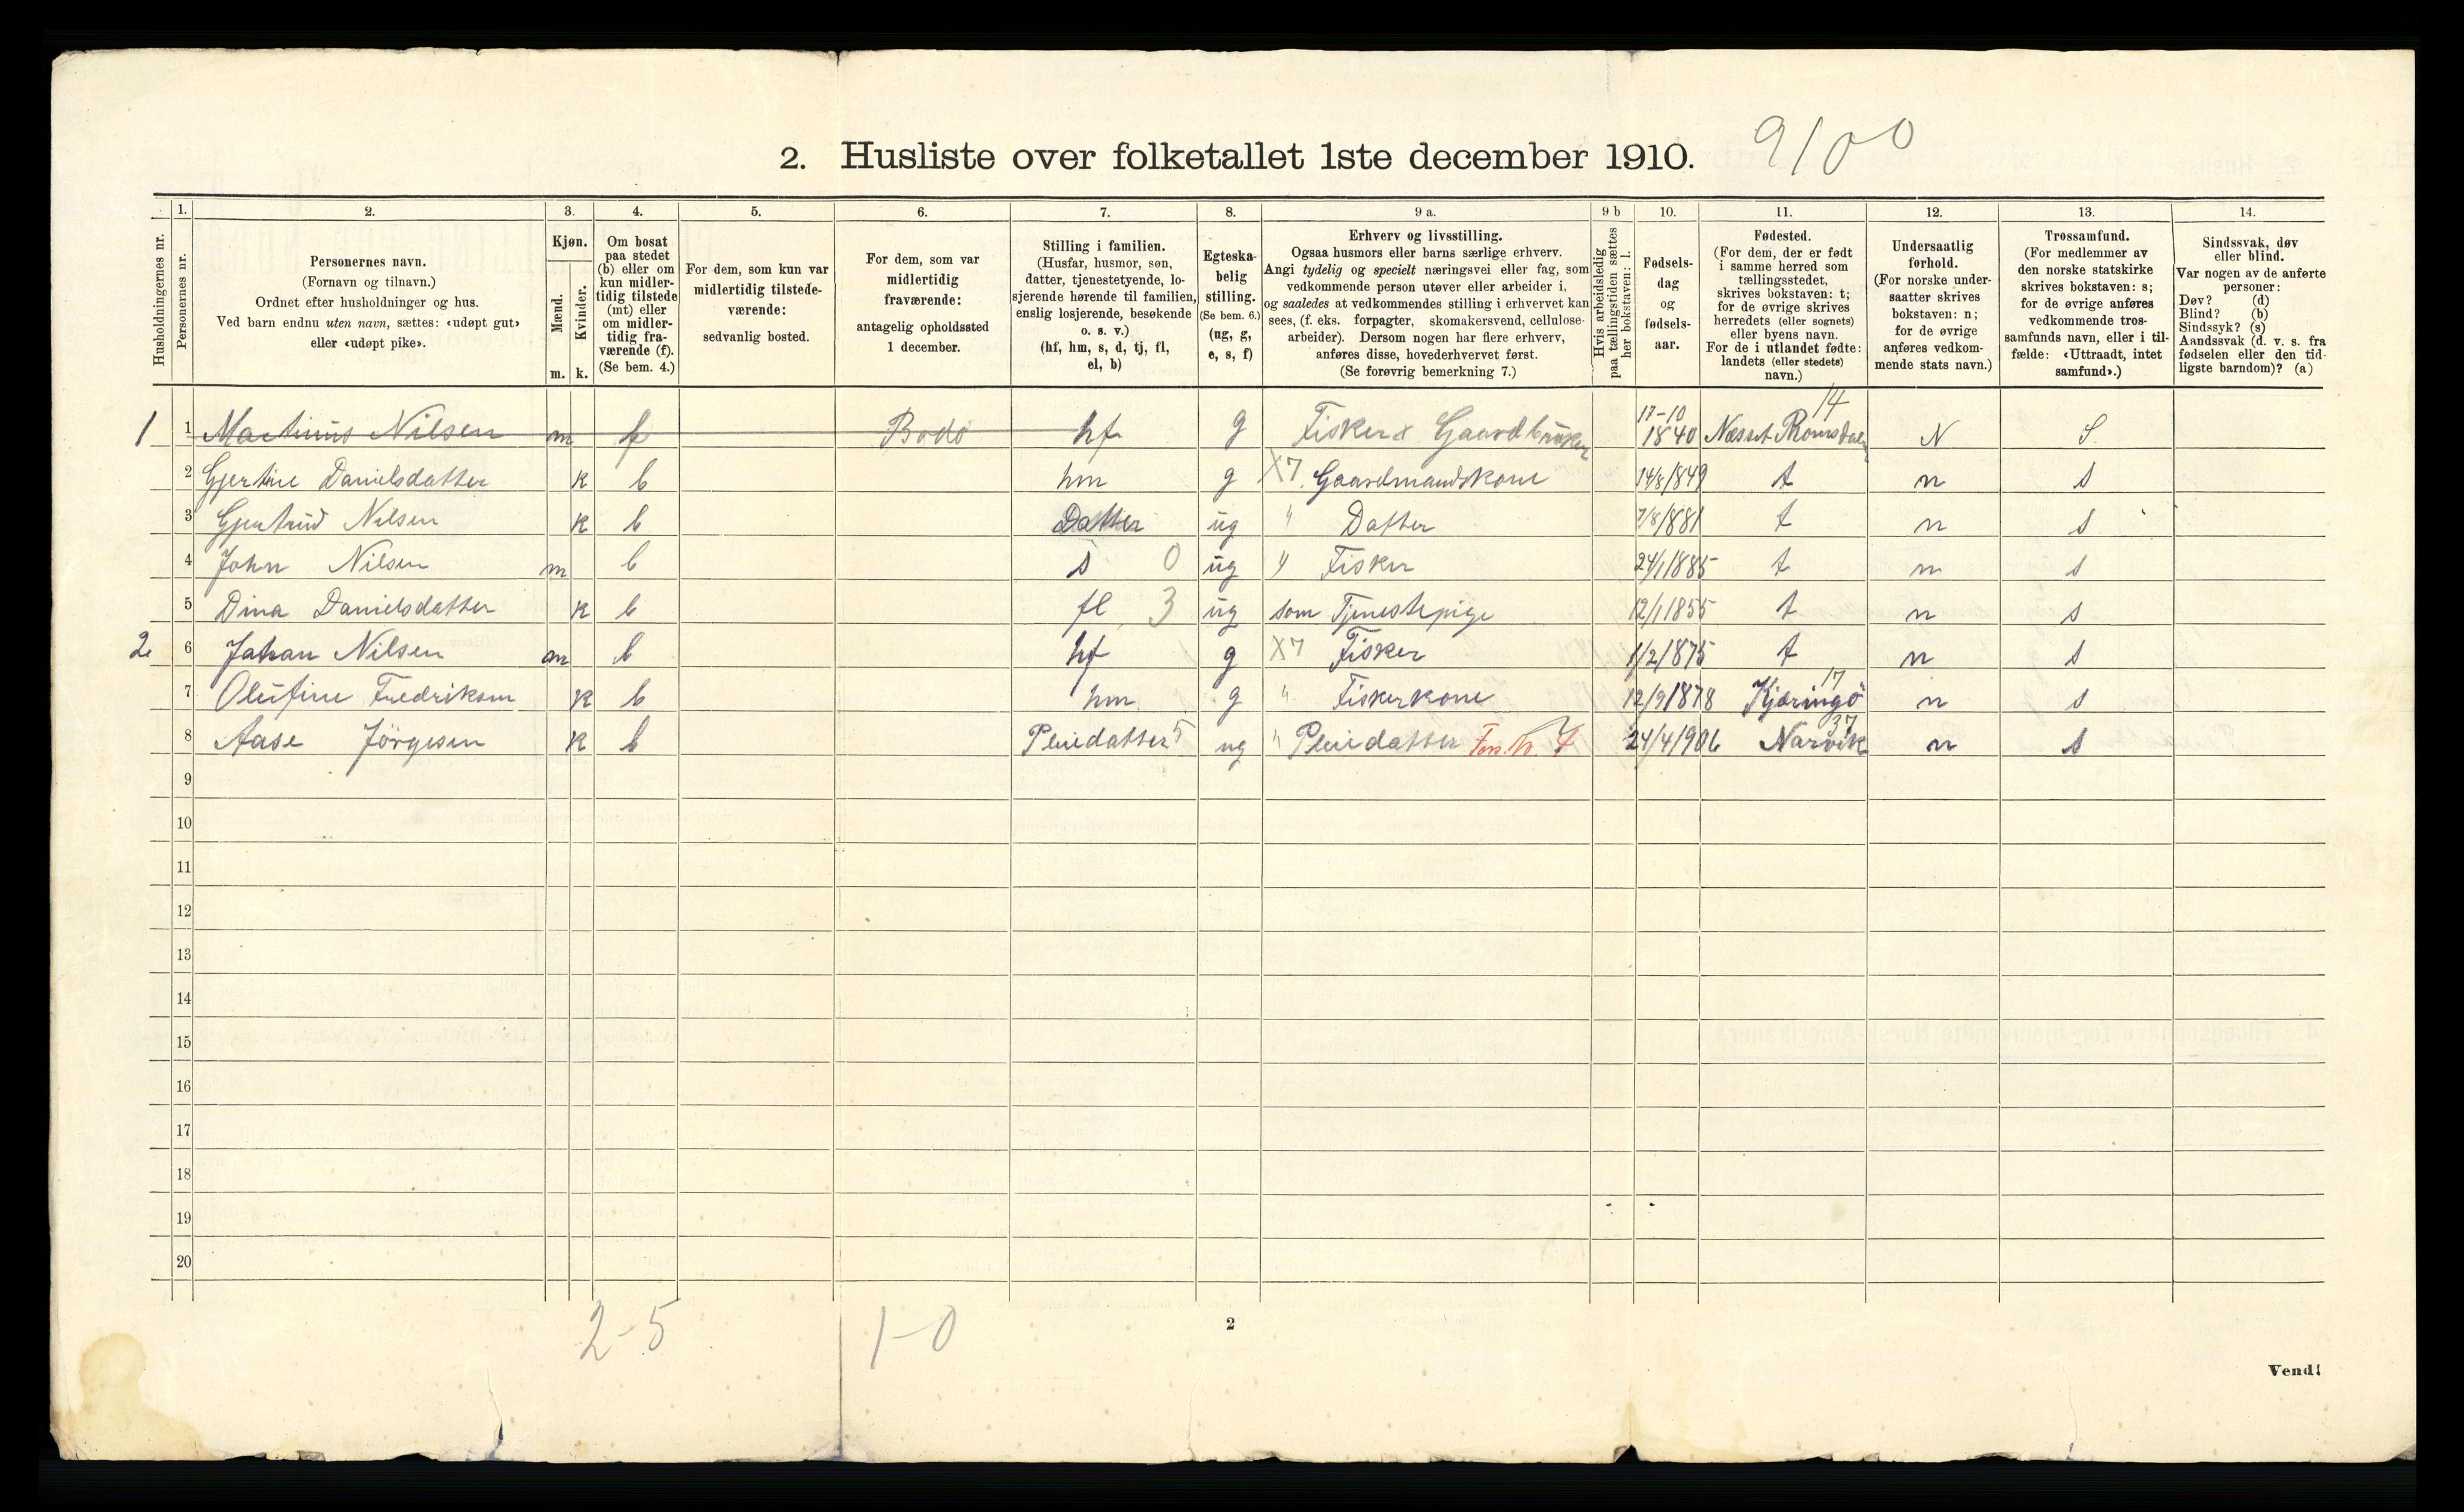 2. Husliste over folketallet 1ste december 1910. 9100
1. 2. 3. 4. 5. 6. 7. 8. 9 a. 9 b 10. 11. 12. 13. 14.
Husholdningernes nr.
Personernes nr.
Personernes navn.
(Fornavn og tilnavn.)
Ordnet efter husholdninger og hus.
Ved barn endnu uten navn, sættes: «udøpt gut»
eller «udøpt pike».
Kjøn.
Mænd.
Kvinder.
m. k.
Om bosat
paa stedet
(b) eller om
kun midler-
tidig tilstede
(mt) eller
om midler-
tidig fra-
værende (f).
(Se bem. 4.)
For dem, som kun var
midlertidig tilstede-
værende:
sedvanlig bosted.
For dem, som var
midlertidig
fraværende:
antagelig opholdssted
1 december.
Stilling i familien.
(Husfar, husmor, søn,
datter, tjenestetyende, lo-
sjerende hørende til familien,
enslig losjerende, besøkende
o. s. v.)
(hf, hm, s, d, tj, fl,
el, b)
Egteska-
belig
stilling.
(Se bem. 6.)
(ug, g,
e, s, f)
Erhverv og livsstilling.
Ogsaa husmors eller barns særlige erhverv.
Angi tydelig og specielt næringsvei eller fag, som
vedkommende person utøver eller arbeider i,
og saaledes at vedkommendes stilling i erhvervet kan
sees, (f. eks. forpagter, skomakersvend, cellulose-
arbeider). Dersom nogen har flere erhverv,
anføres disse, hovederhvervet først.
(Se forøvrig bemerkning 7.)
Hvis arbeidsledig
paa tællingstiden sættes
her bokstaven: l.
Fødsels-
dag
og
fødsels-
aar.
Fødested.
(For dem, der er født
i samme herred som
tællingsstedet,
skrives bokstaven: t;
for de øvrige skrives
herredets (eller sognets)
eller byens navn.
For de i utlandet fødte:
landets (eller stedets)
navn.)
Undersaatlig
forhold.
(For norske under-
saatter skrives
bokstaven: n;
for de øvrige
anføres vedkom-
mende stats navn.)
Trossamfund.
(For medlemmer av
den norske statskirke
skrives bokstaven: s;
for de øvrige anføres
vedkommende tros-
samfunds navn, eller i til-
fælde: «Uttraadt, intet
samfund».)
Sindssvak, døv
eller blind.
Var nogen av de anførte
personer:
Døv? (d)
Blind? (b)
Sindssyk? (s)
Aandssvak (d. v. s. fra
fødselen eller den tid-
ligste barndom)? (a)
1 1 Martinus Nilsen m f Bodø hf g Fisker & Gaardbruker 17-10 1840 Næsset Romsdalen 14 N S
2 Gjertine Danielsdatter k b hm g X7 Gaardmandskone 14/8 1849 t n s
3 Gjertrud Nilsen k b Datter ug " Datter 7/8 1881 t n s
4 John Nilsen m b s 0 ug " Fisker 24/1 1885 t n s
5 Dina Danielsdatter k b fl 3 ug som Tjenestepige 12/1 1855 t n s
2 6 Johan Nilsen m b hf g X7 Fisker 1/2 1875 t n s
7 Olufine Fredriksen k b hm g " Fiskerkone 12/9 1878 Kjæringö 17 n s
8 Aase Jörgesen k b Pleiedatter 5 ug " Pleiedatter 24/4 1906 Narvik 37 n s
9
10
11
12
13
14
15
16
17
18
19
20
2-5 1-0
2
Vend!